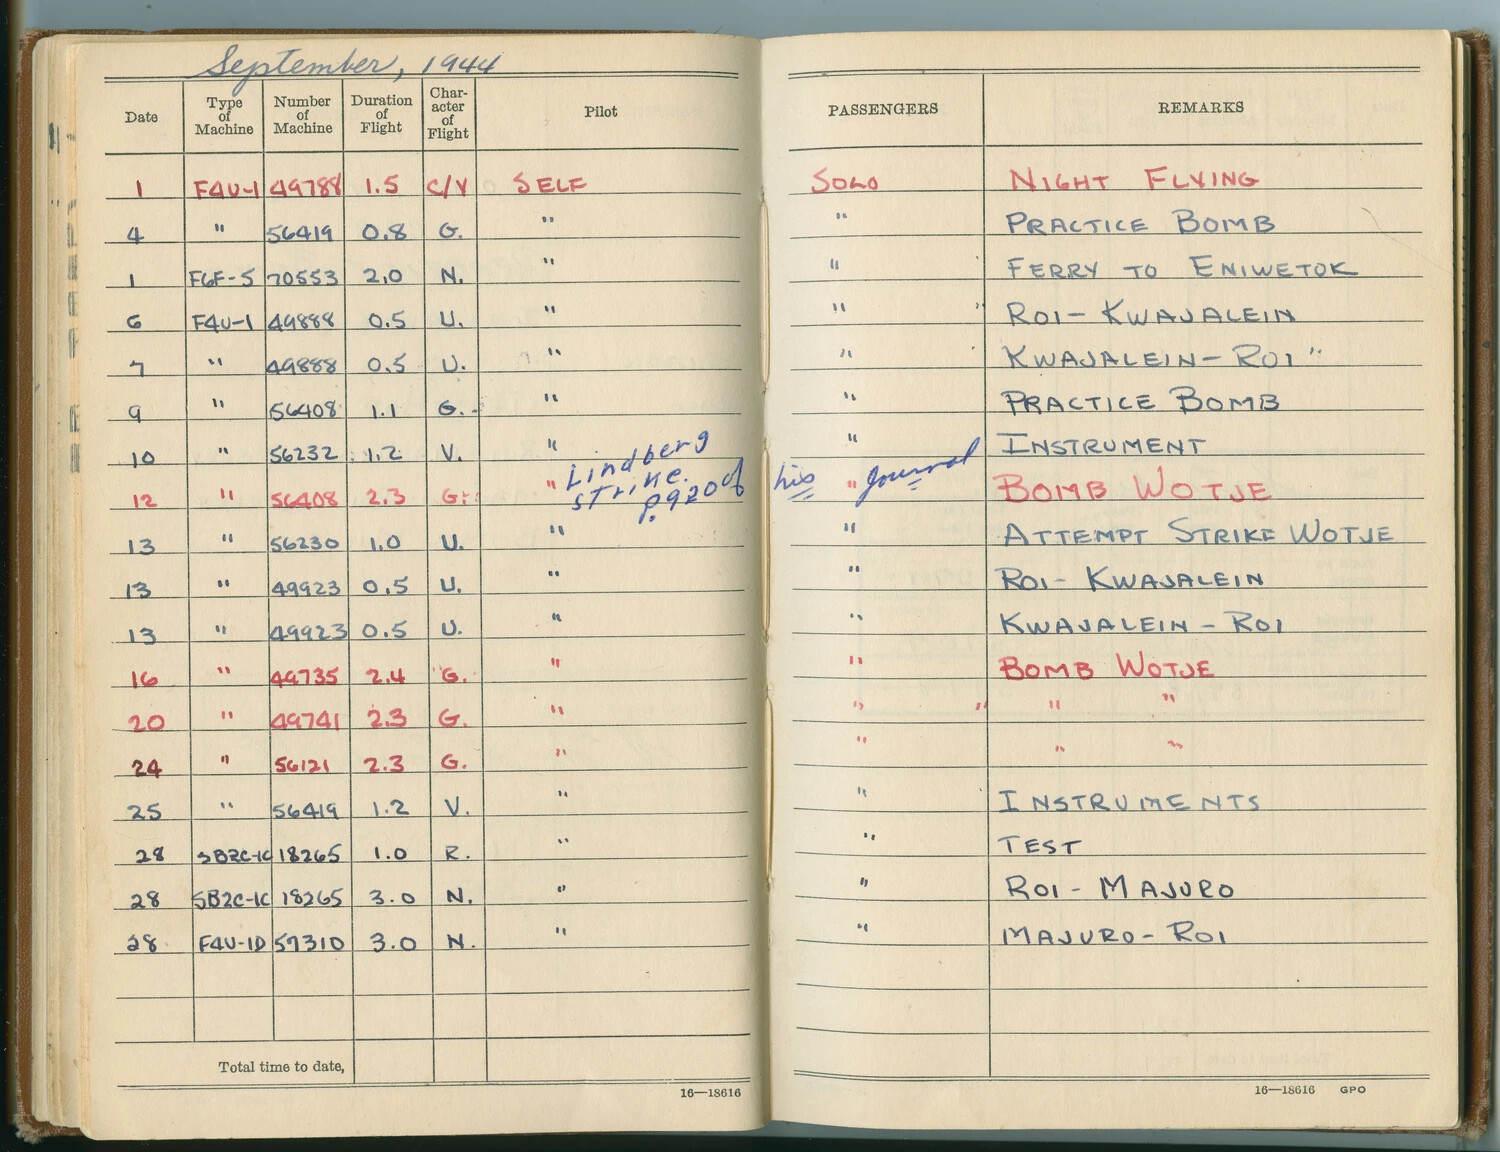 September, 1944
Date Type of Machine Number of Machine Duration of Flight Char-acter of Flight Pilot PASSENGERS REMARKS
1 F4U-1 49788 1.5 C/V SELF SOLO NIGHT FLYING
4 " 56419 0.8 G. " " PRACTICE BOMB
1 F6F-5 70553 2.0 N. " " FERRY TO ENIWETOK
6 F4U-1 49888 0.5 U. " " " ROI-KWAJALEIN
7 " 49888 0.5 U. " " KWAJALEIN-ROI "
9 " 56408 1.1 G. " " PRACTICE BOMB
10 " 56232 1.2 V. " " INSTRUMENT
Lindberg strike. p.920 of his journal
12 " 56408 2.3 G. " " BOMB WOTJE
13 " 56230 1.0 U. " " ATTEMPT STRIKE WOTJE
13 " 49923 0.5 U. " " ROI-KWAJALEIN
13 " 49923 0.5 U. " " KWAJALEIN-ROI
16 " 49735 2.4 G. " " BOMB WOTJE
20 " 49741 2.3 G. " " " " "
24 " 56121 2.3 G. " " " "
25 " 56419 1.2 V. " " INSTRUMENTS
28 SB2C-1C 18265 1.0 R. " " TEST
28 SB2C-1C 18265 3.0 N. " " ROI-MAJURO
28 F4U-1D 57310 3.0 N. " " MAJURO-ROI
Total time to date,
16—18616
16—18616 GPO